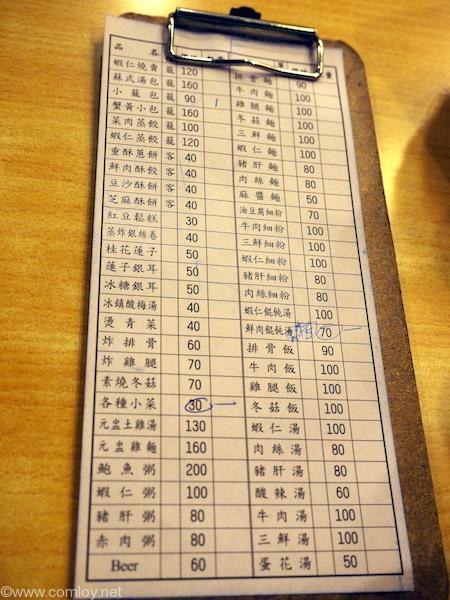 品 名
蝦仁燒賣 籠 120
蘇式湯包 籠 160
小籠包 籠 90 1
蟹黃小包 籠 160
菜肉蒸餃 籠 100
蝦仁蒸餃 籠 120
重酥蔥餅 客 40
鮮肉酥餃 客 40
豆沙酥餅 客 40
芝麻酥餅 客 40
紅豆鬆糕 30
蒸炸銀絲卷 40
桂花蓮子 50
蓮子銀耳 50
冰糖銀耳 50
冰鎮酸梅湯 40
燙青菜 40
炸排骨 60
炸雞腿 70
素燒冬菇 70
各種小菜 30
元盅土雞湯 130
元盅雞麵 160
鮑魚粥 200
蝦仁粥 100
豬肝粥 80
赤肉粥 80
Beer 60
單 量
排骨麵 90
牛肉麵 100
雞腿麵 100
冬菇麵 100
三鮮麵 100
蝦仁麵 100
豬肝麵 80
肉絲麵 80
麻醬麵 50
油豆腐細粉 70
牛肉細粉 100
三鮮細粉 100
蝦仁細粉 100
豬肝細粉 80
肉絲細粉 80
蝦仁餛飩湯 100
鮮肉餛飩湯 70
排骨飯 90
牛肉飯 100
雞腿飯 100
冬菇飯 100
蝦仁湯 100
肉絲湯 80
豬肝湯 80
酸辣湯 60
牛肉湯 100
三鮮湯 100
蛋花湯 50
©www.comloy.net